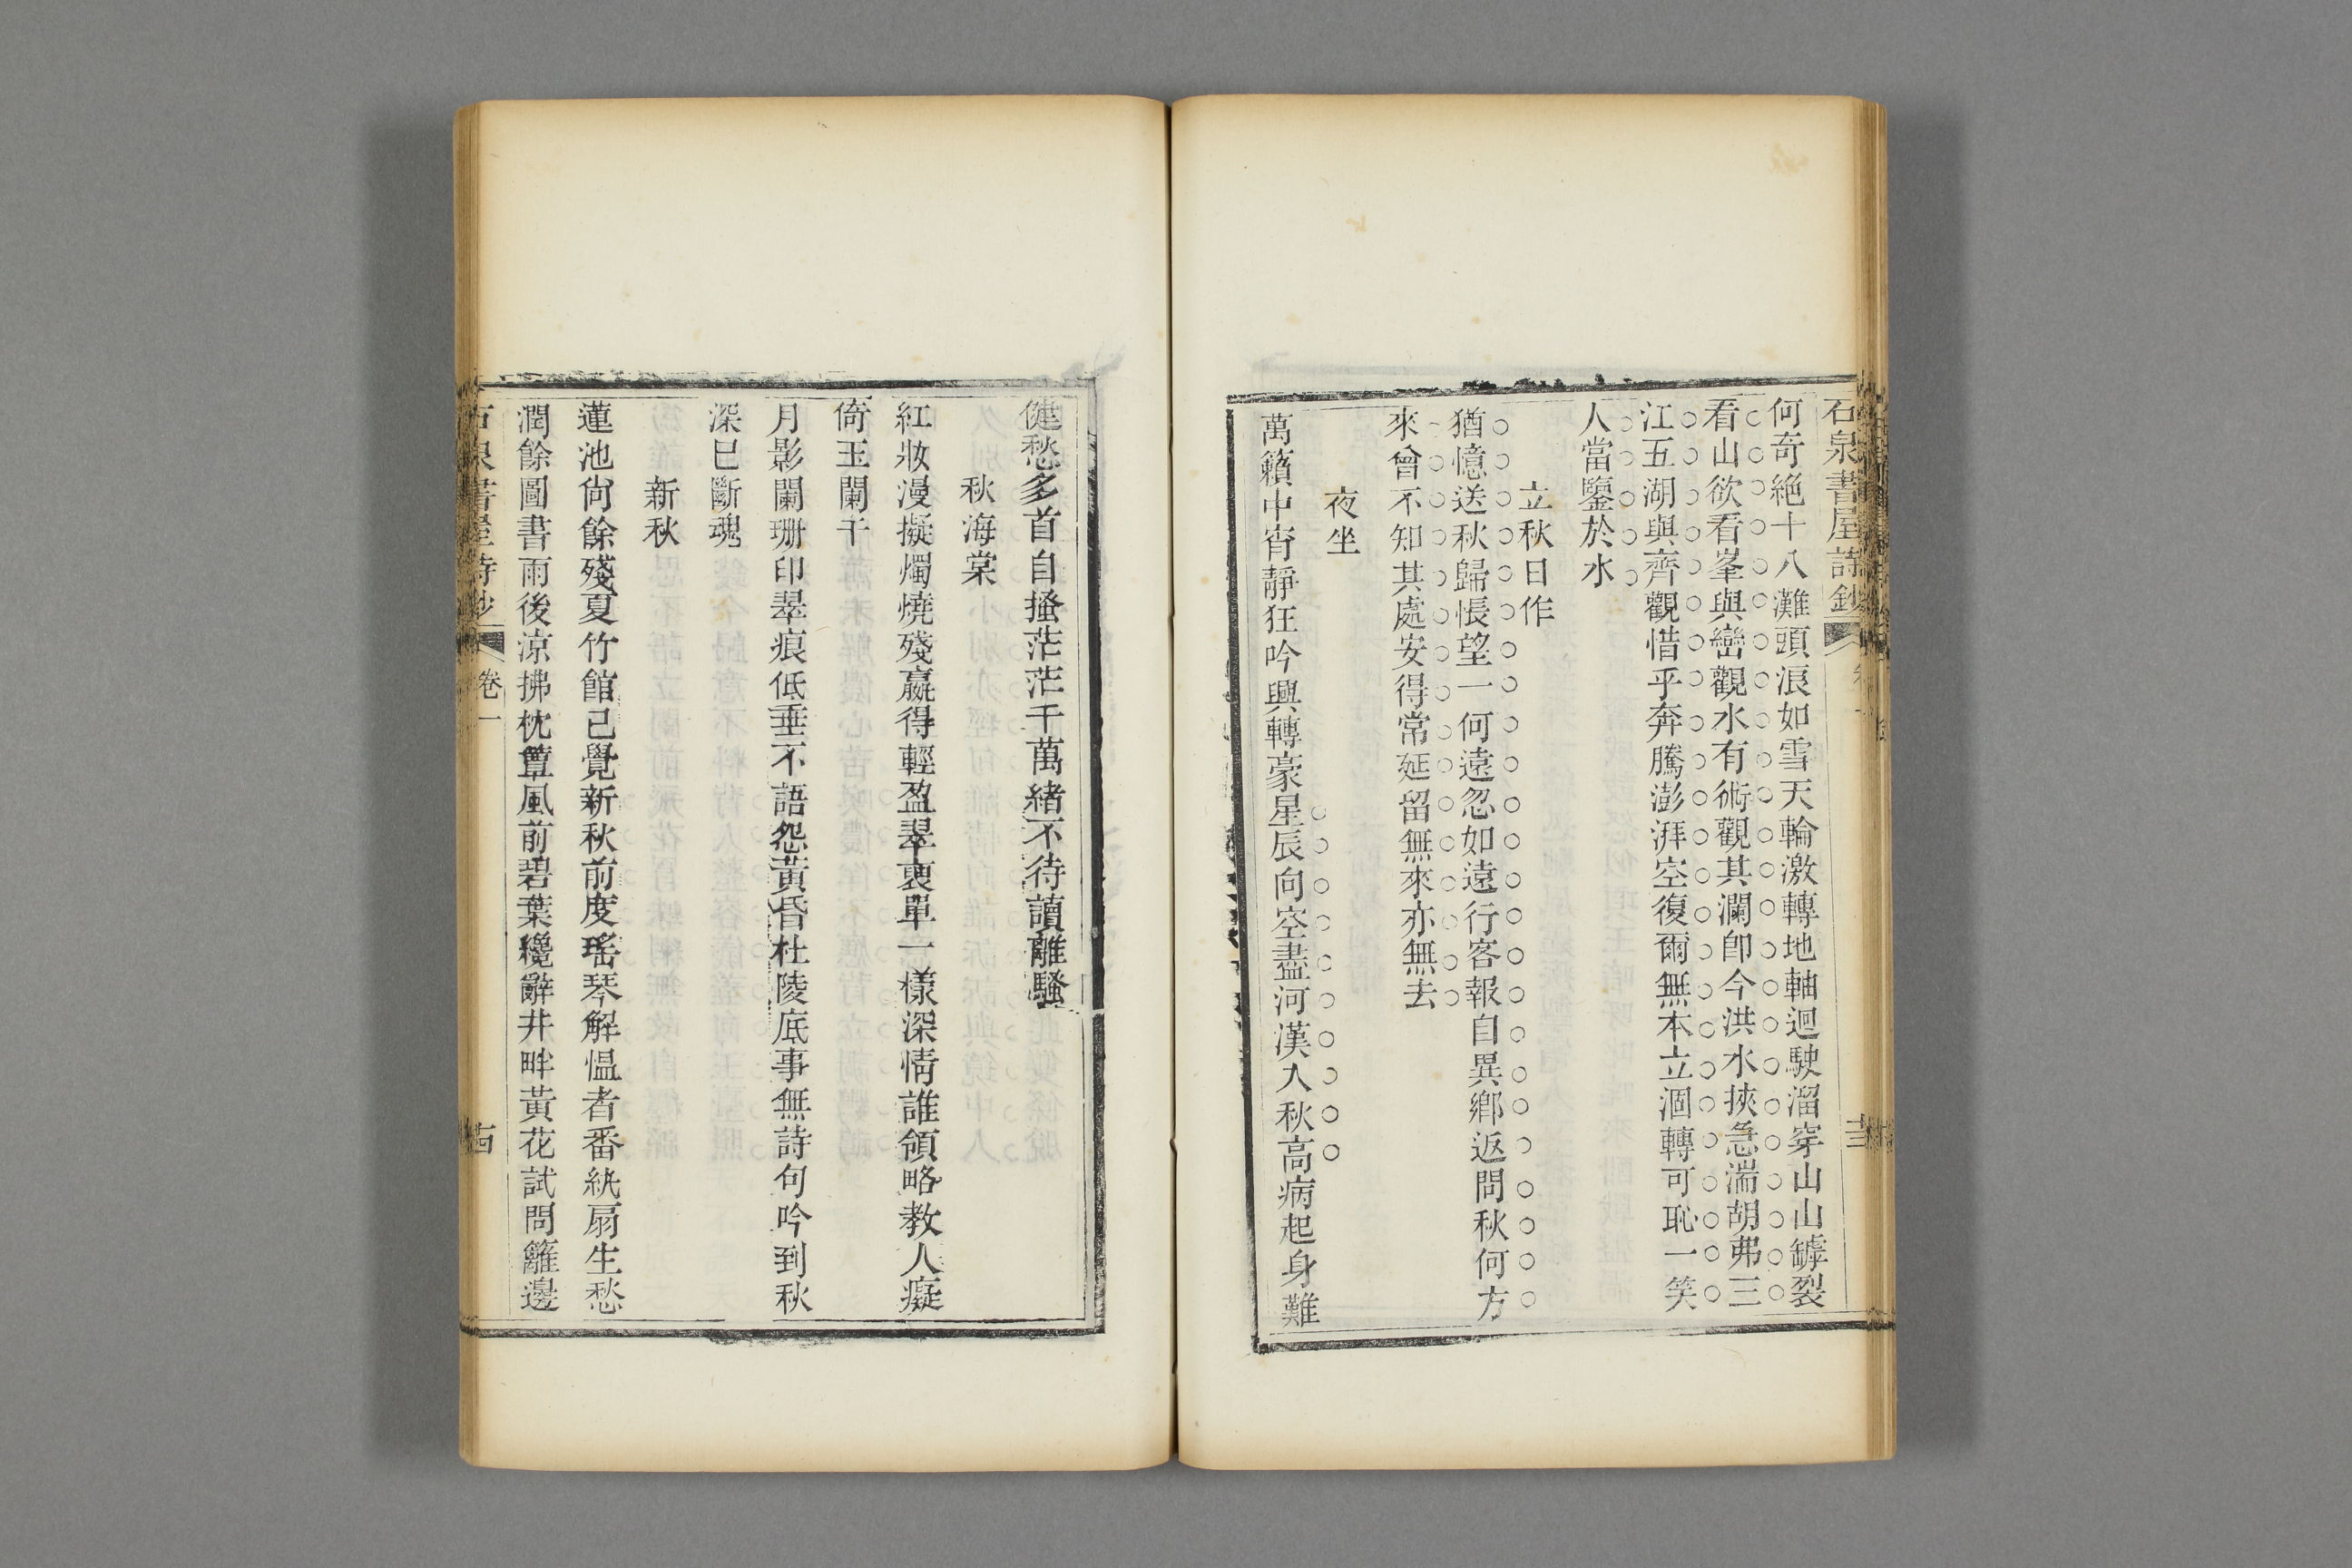 石泉書屋詩鈔
何奇絶十八灘頭浪如雪天輪激轉地軸迴駛溜穿山山罅裂
看山欲看峯與巒觀水有術觀其瀾卽今洪水挾急湍胡弗三
江五湖與齊觀惜乎奔騰澎湃空復爾無本立涸轉可恥一笑
人當鑒於水
立秋日作
猶憶送秋歸悵望一何遠忽如遠行客報自異鄉返問秋何方
來曾不知其處安得常延留無來亦無去
夜坐
萬籟中宵靜狂吟興轉豪星辰向空盡河漢入秋高病起身難
健愁多首自搔茫茫千萬緒不待讀離騷
秋海棠
紅妝漫擬燭燒殘嬴得輕盈翠裏單一樣深情誰領略教人癡
倚玉闌干
月影闌珊印翠痕低垂不語怨黃昏杜陵底事無詩句吟到秋
深已斷魂
新秋
蓮池尙餘殘夏竹館已覺新秋前度瑤琴解慍者番紈扇生愁
潤餘圖書雨後涼拂枕簟風前碧葉纔辭井畔黃花試問籬邊
石泉書屋詩鈔 卷一